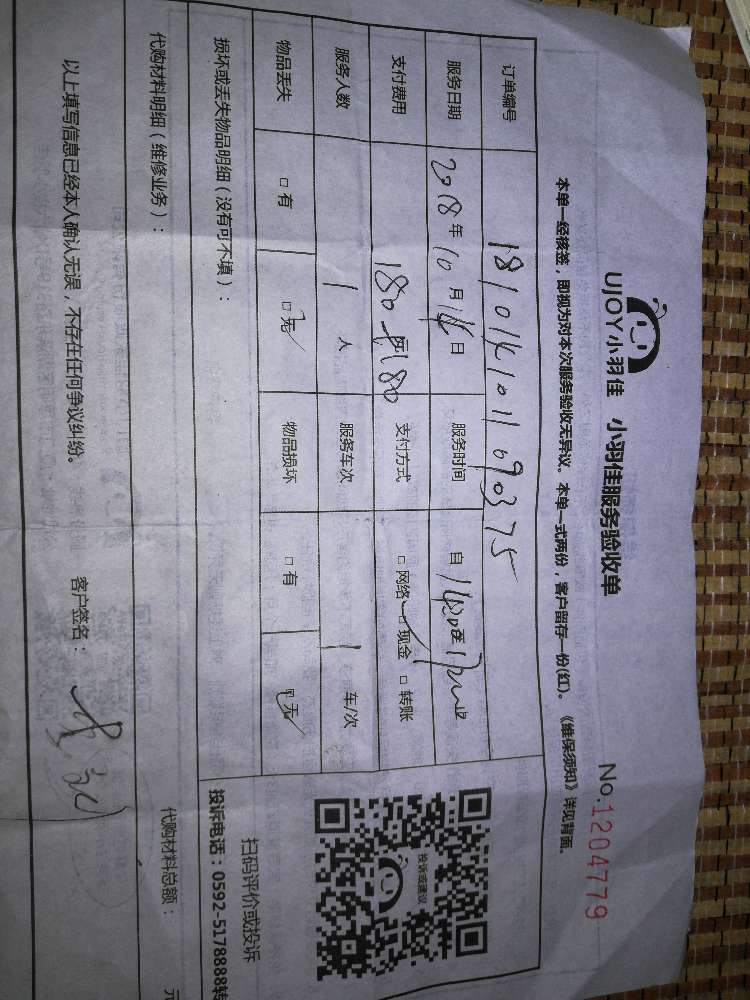 UJOY小羽佳 小羽佳服务验收单
No.1204779
本单一经核签，即视为对本次服务验收无异议。本单一式两份，客户留存一份(红)。《维保须知》详见背面。
订单编号 181014101169375
服务日期 2018年10月14日 服务时间 自1430至1700
支付费用 180元180 支付方式 □网络 □现金 □转账
服务人数 1人 服务车次 1车/次
物品丢失 □有 □无 物品损坏 □有 □无
损坏或丢失物品明细（没有可不填）：
投诉或建议
扫码评价或投诉
投诉电话：0592-5178888转
代购材料明细（维修业务）： 代购材料总额： 元
以上填写信息已经本人确认无误，不存在任何争议纠纷。 客户签名：